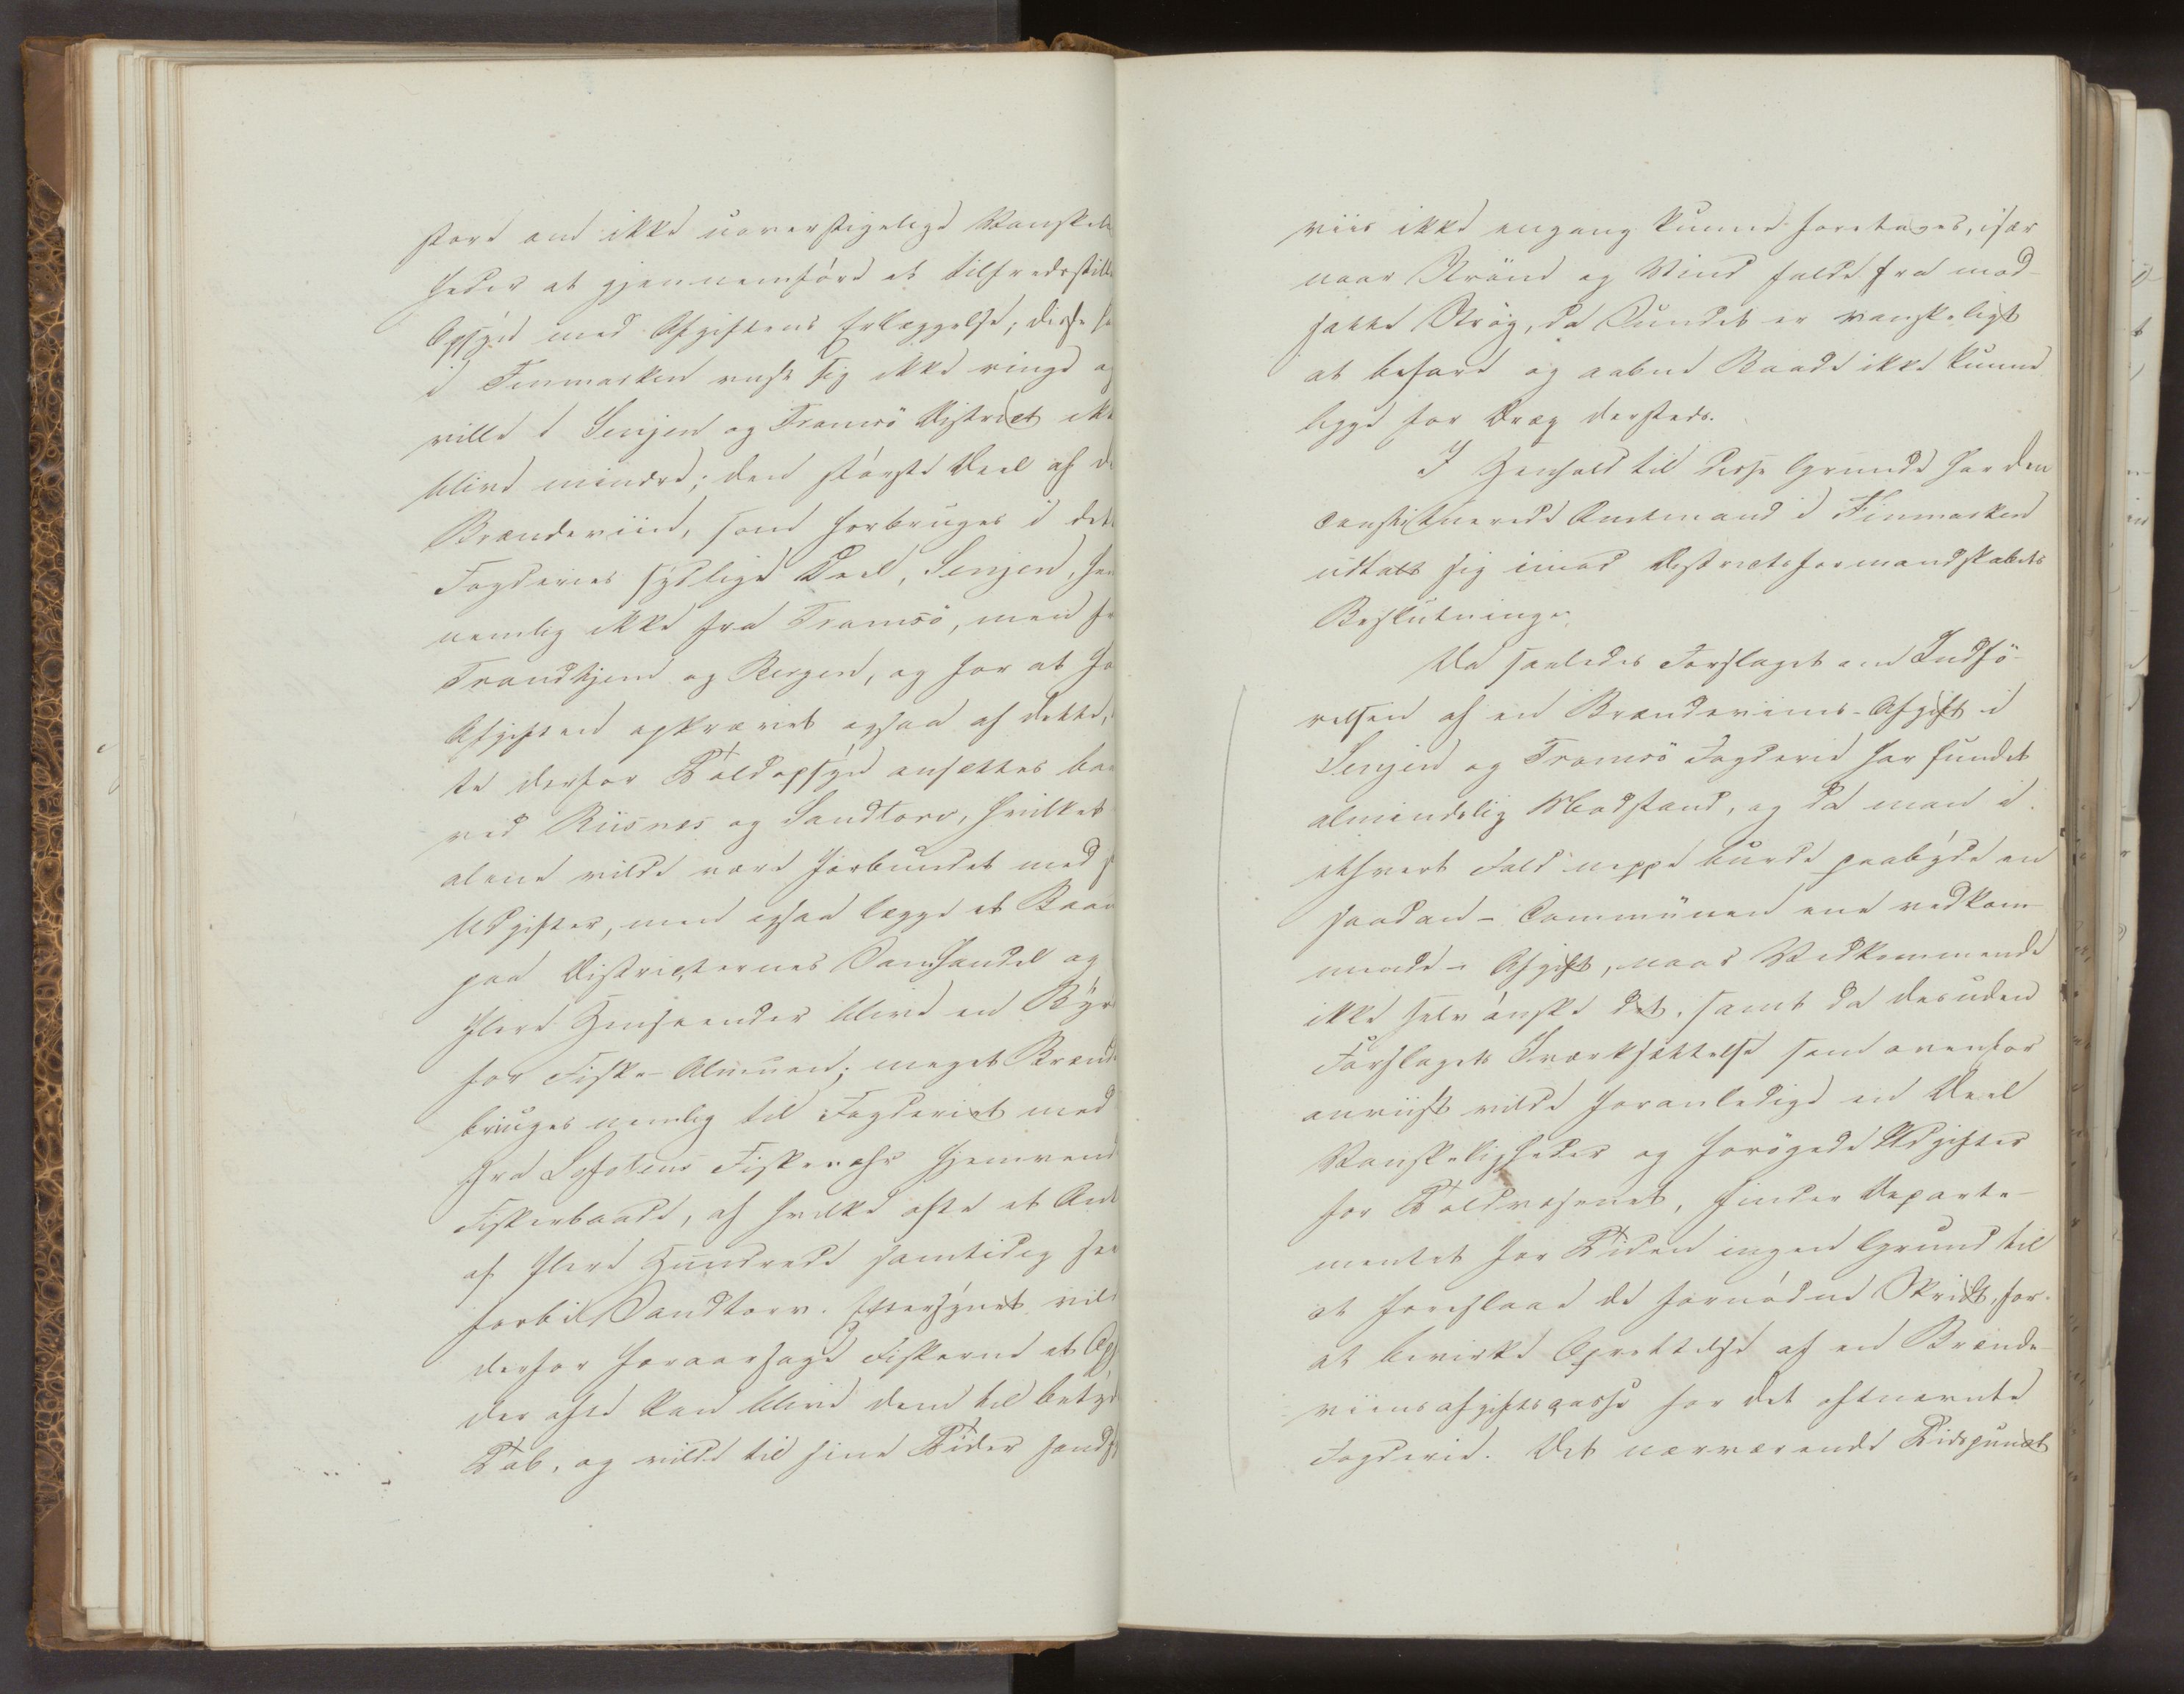 store om ikke uoverstigelige Vanskelig
heder at gjennemføre et tilfredsstille
Opsyn med Afgiftens Erlæggelse; disse ha
i Finmarken viist sig ikke ringe og
ville i Senjen og Tromsö District ikke
blive mindre; den største Deel af de
Brændeviin, som forbruges i dette
Fogderies sydlige Deel, Senjen,
nemlig ikke fra Tromsö, men fr
Trondhjem og Bergen, og for at fa
Afgiften opkrævet ogsaa af dette,
te derfor Toldopsyn ansættes baa
ved Riisnæs og Sandtorv, hvilket
alene vilde være forbundet med
Udgifter, men ogsaa lægge et Baan
paa Districternes Samhandel og
flere Henseender blive en Byrde
for Fiske-Almuen; meget Brænde
bringes nemlig til Fogderiet med
fra Lofotens Fiskevær hjemvend
Fiskerbaade, af hvilke ofte et Ant
af flere Hundrede samtidig
forbi Sandtorv. Eftersynet vil
derfor foraarsage Fiskerne et Op
der ofte kan blive dem til betyd
Tab, og vilde til sine Tider
viis ikke engang kunne foretages, især
naar Strøm og Vind falde fra mod-
satte Strøg, da Sundet er vanskeligt
at befare og aabne Baade ikke kunne
ligge for Dræg dersteds.
I Henhold til disse Grunde har den
constituerede Amtmand i Finmarken
udtalt sig imod Districtsformandskabets
Beslutninger.
Da saaledes Forslaget om Indfö-
relsen af en Brændeviins-Afgift i
Senjen og Tromsö Fogderie har fundet
almindelig Modstand, og da man i
ethvert Fald neppe burde paabyde en
saadan - Communen ene vedkom-
mende - Afgift, naar Vedkommende
ikke selv ønske det, samt da desuden
Forslagets Iværksættelse som ovenfor
anviist vilde foranledige en Deel
Vanskeligheder og forøgede Udgifter
for Toldvæsenet, finder Departe-
mentet for Tiden ingen Grund til
at foreslaae de fornødne Skridt for
at bevirke Oprettelse af en Brænde-
viinsafgiftscasse for det oftnævnte
Fogderie. Det nærværende Tidspunct